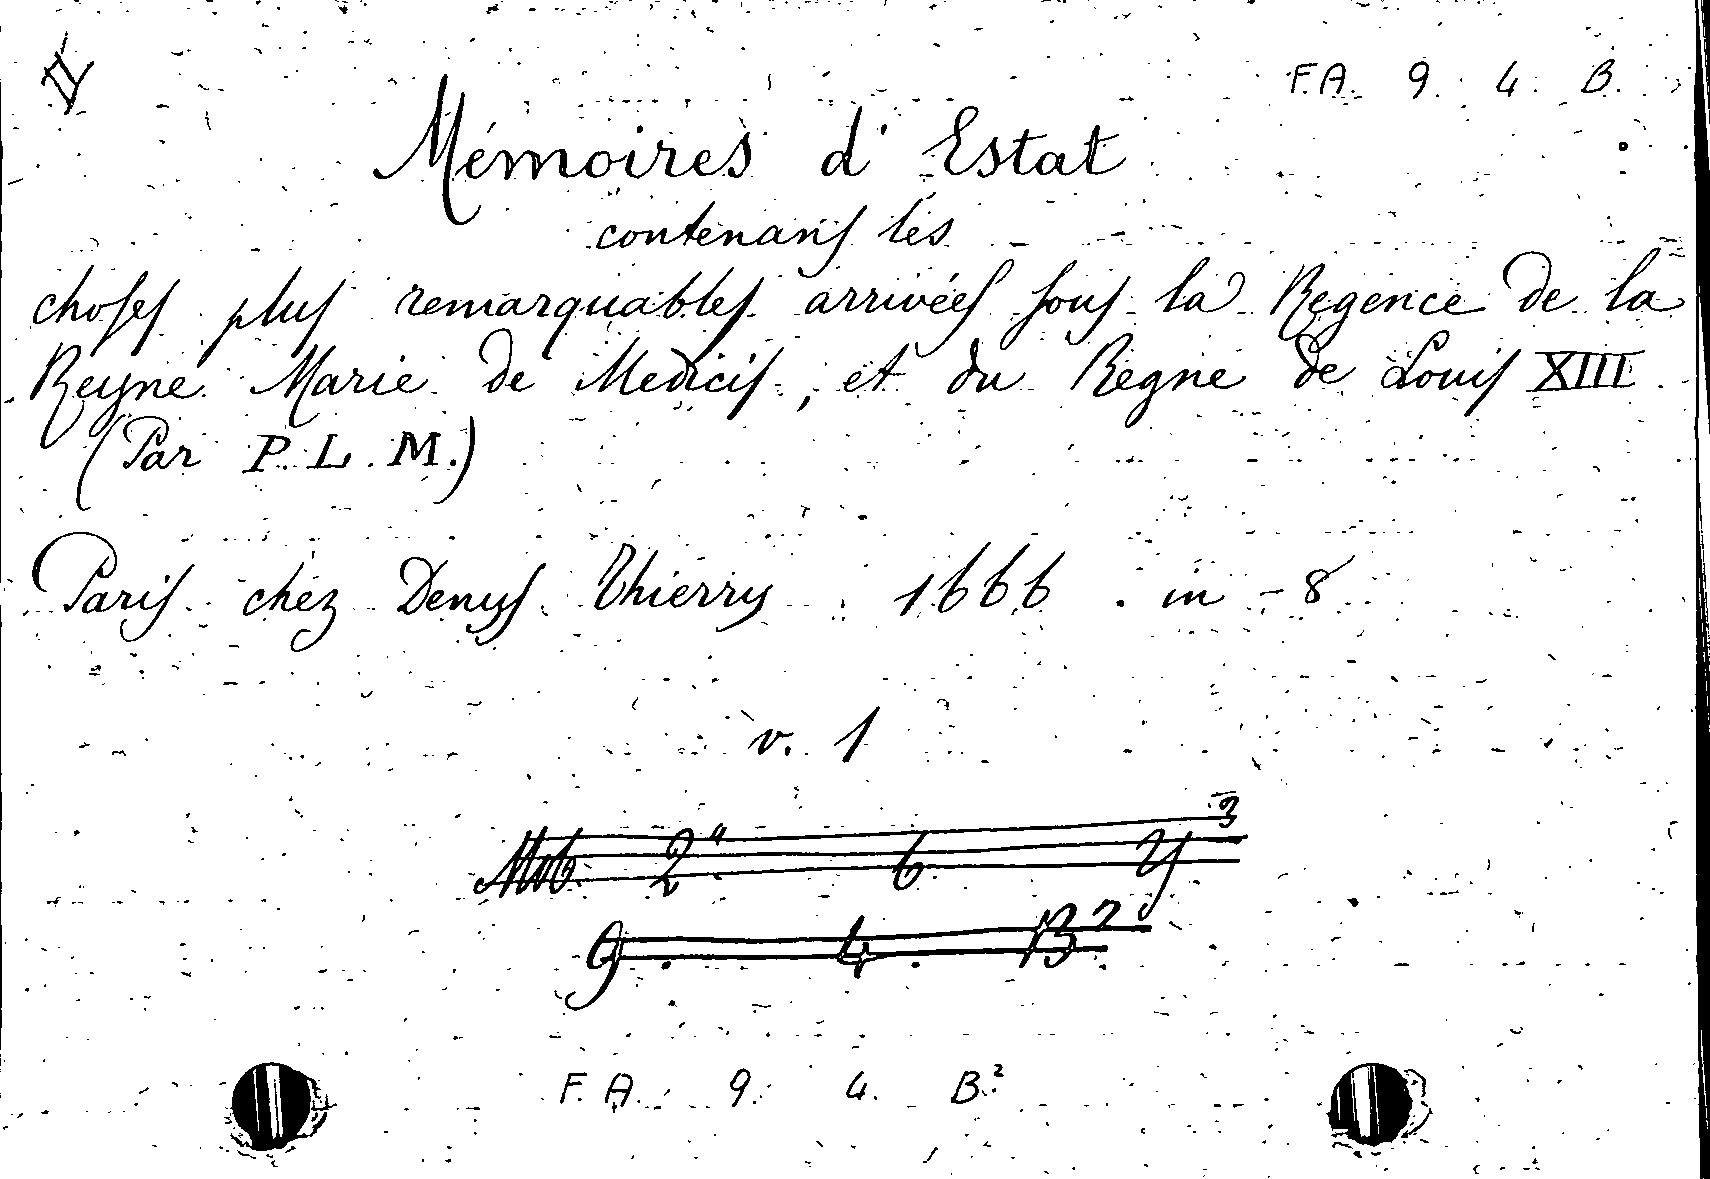 F.A. 9. 4. B.
Mémoires d'Estat
contenans les
choses plus remarquables arrivées sous la Regence de la
Reyne Marie de Medicis, et du Regne de Louis XIII
(Par P. L. M.)
Paris chez Denys Thierry 1666. in-8
v. 1
2ª 6 y³
9. 4. B²
F. A. 9. 4. B²